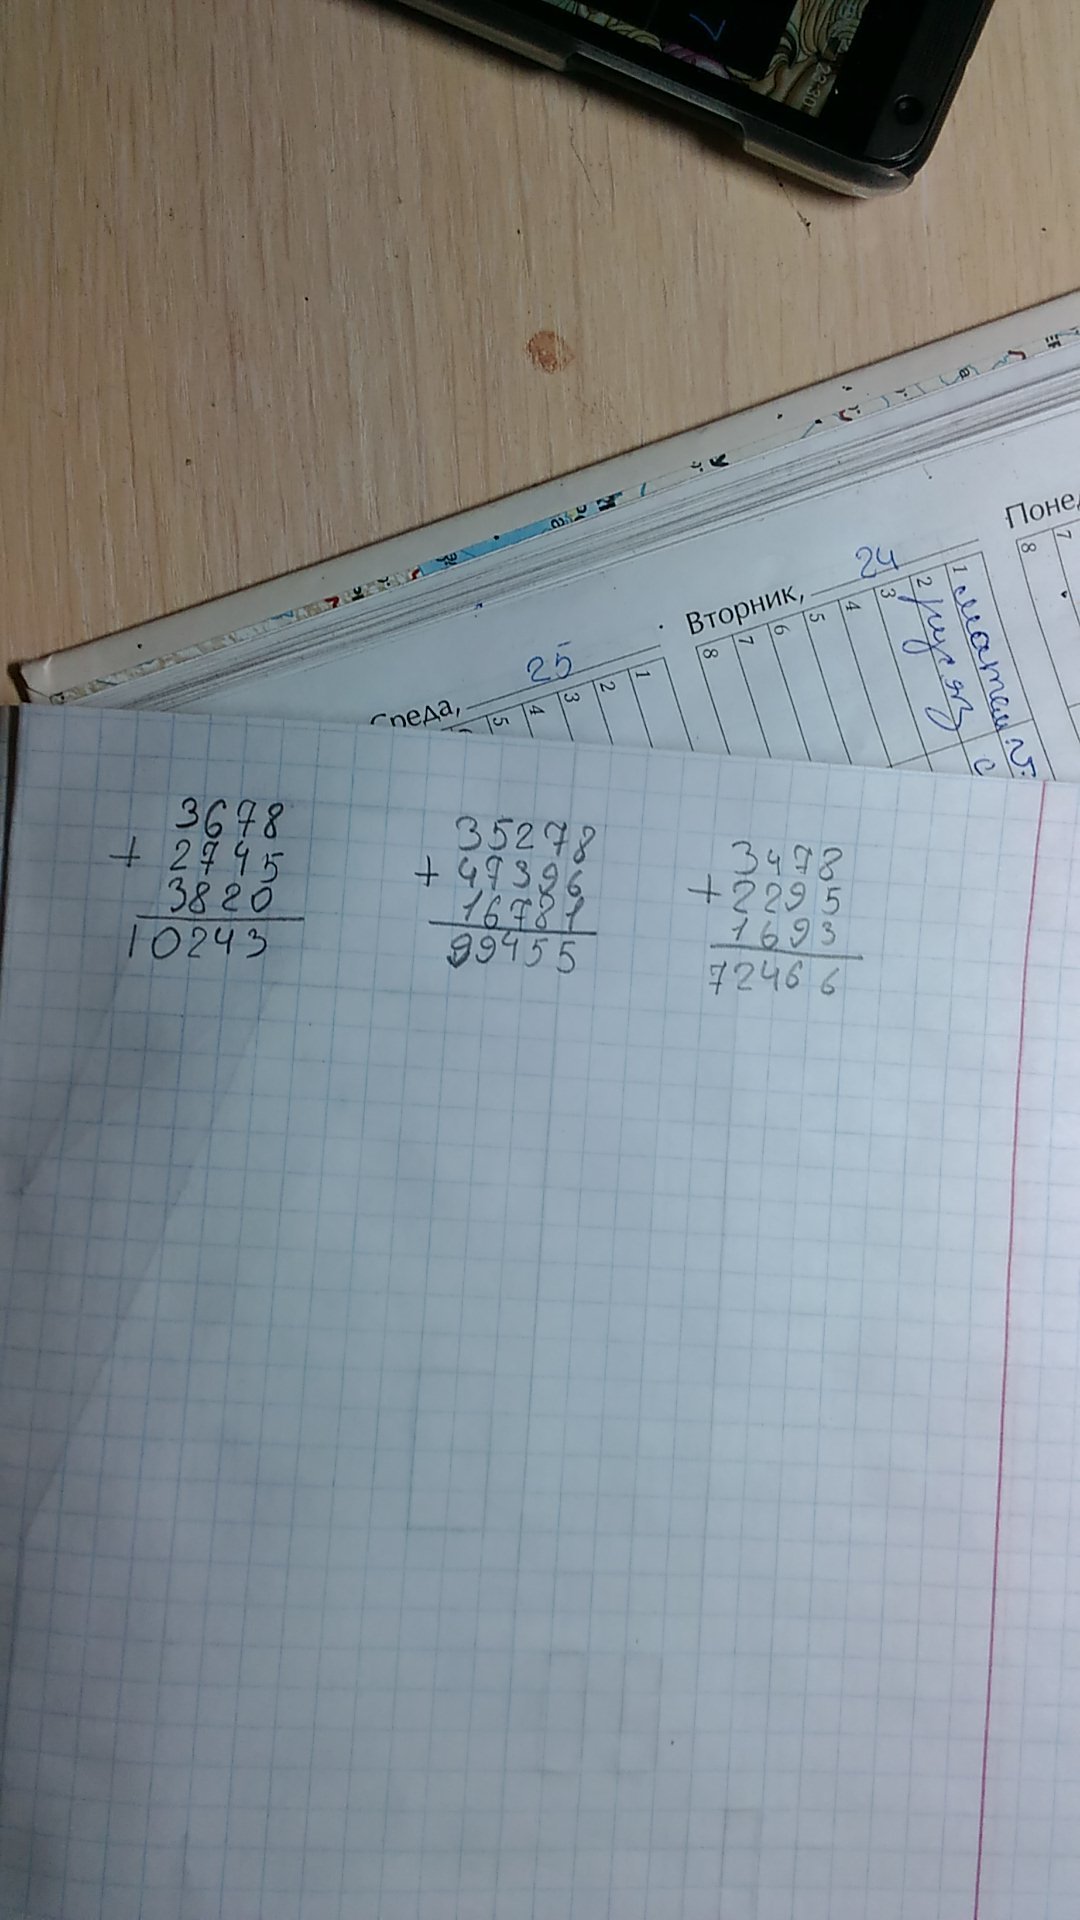 22:30
Понед
7
8
Вторник, 24
1 матем
2 рус яз
3
4
5
6
7
8
Среда, 25
1
2
3
4
5
3678
+ 2745
3820
10243
35278
+ 47396
16781
99455
3478
+ 2295
1693
72466